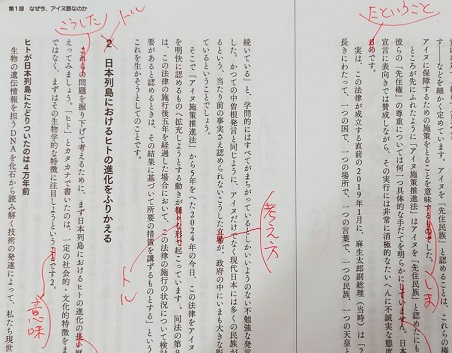 たということ
――などを細かく定めています。アイヌを「先住民族」と認めることは、これらの権
アイヌに保障するための施策をとることを意味する
しま
ところが先にふれたように、「アイヌ施策推進法」はアイヌを「先住民族」と認めたにも
彼らの「先住権」の尊重については何一つ具体的な手だてを明らかにしていません。日本
宣言に表向きでは賛成しながら、その実行には非常に消極的なたいへん不誠実な態度
めです。
実は、この法律が成立する直前の2019年1月に、麻生太郎副総理(当時)は「2
長きにわたって、一つの国で、一つの場所で、一つの言葉で、一つの民族、一つの天皇
第1部 なぜ今、アイヌ語なのか
続いている」と、学問的にはすべてがまちがっているとしかいいようのない不勉強な発言
した。かつての中曽根発言と同じように、アイヌだけでなく現代日本には多くの民族が
るという、当たり前の事実さえ認められないこうした立場が、政府の中にいまも大きな影
考え方
ているということでしょう。
そこで「アイヌ施策推進法」から5年をへた2024年の今日、この法律をアイヌ
を明快に認めるものへ拡充しようとする動きが様々な形で起こっています。同法の第9
トル
は、この法律の施行後五年を経過した場合において、この法律の施行の状況について検討
要があると認めるときは、その結果に基づいて所要の措置を講ずるものとする」という
これを生かそうとしてのことです。
トル
2 日本列島におけるヒトの進化をふりかえる
こうした
の問題を掘り下げて考えるために、まず日本列島におけるヒトの進化の長い歴
えってみましょう。「ヒト」とカタカナで書いたのは、一定の社会的・文化的特徴をま
ではなく、まずはその生物学的な特徴に注目しようという
です2。
意味
ヒトが日本列島にたどりついたのは4万年前
生物の遺伝情報を担うDNAを化石から読み解く技術の発達によって、私たち現世